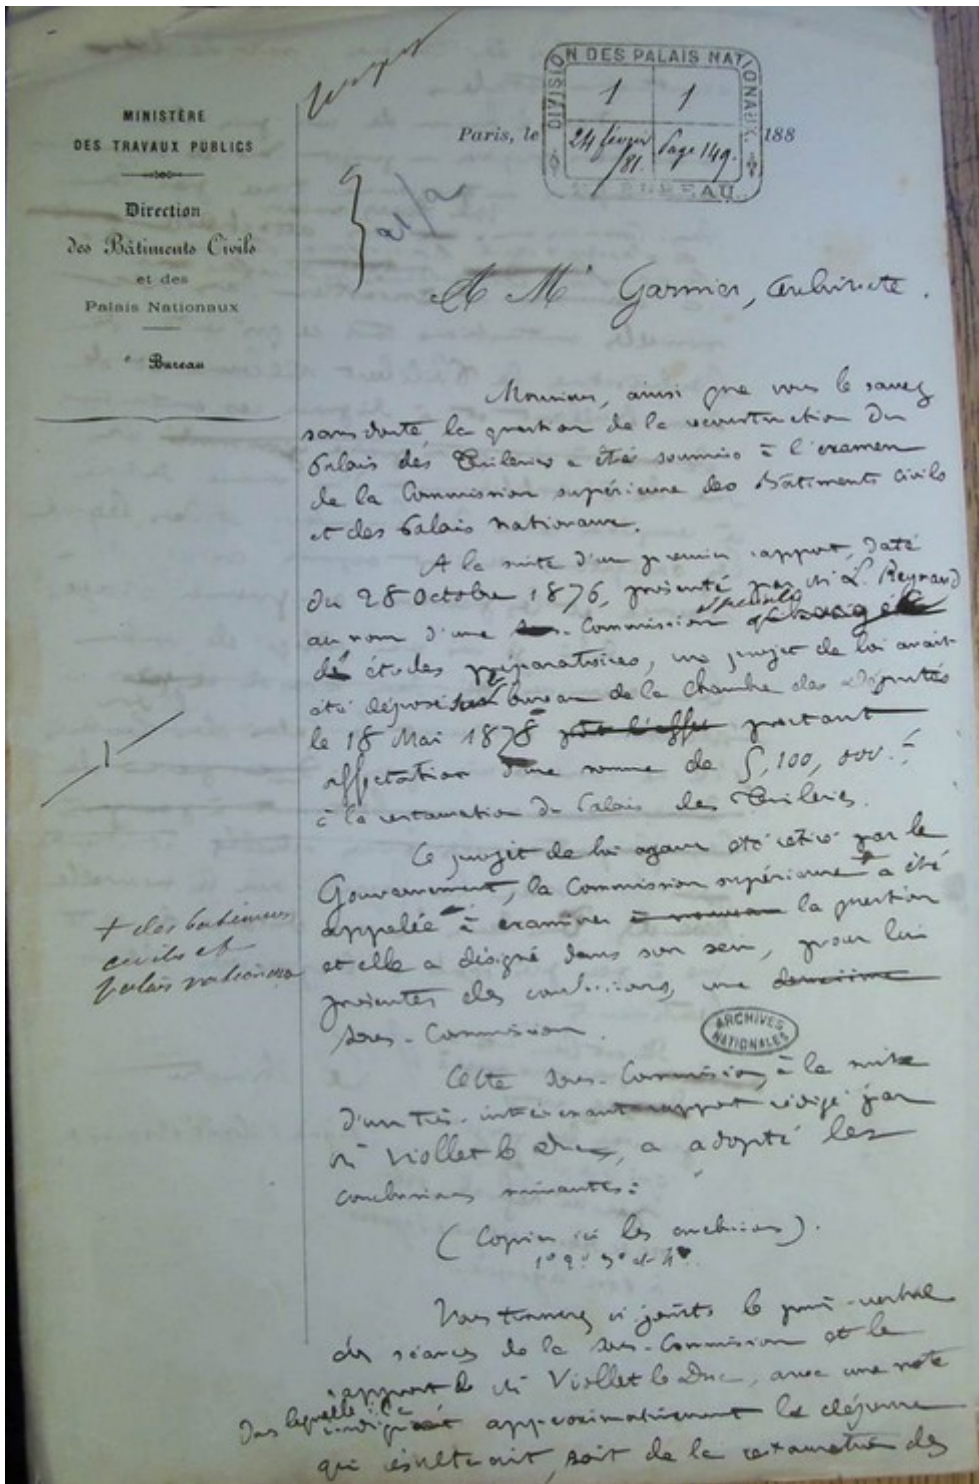 MINISTÈRE
DES TRAVAUX PUBLICS
Direction
des Bâtiments Civils
et des
Palais Nationaux
Bureau
DIVISION DES PALAIS NATIONAUX.
1 1
24 février 81. Page 149.
BUREAU
Paris, le 188
A Mr Garnier, Architecte.
Monsieur, ainsi que vous le savez
sans doute, la question de la reconstruction du
Palais des Tuileries a été soumise à l'examen
de la Commission supérieure des Bâtiments civils
et des Palais nationaux.
A la suite d'un premier rapport, daté
du 28 Octobre 1876, présenté par M. L. Reynaud
au nom d'une Commission
études préparatoires, un projet de loi avait
été déposé sur le bureau de la Chambre des Députés
le 18 Mai 1878 pour l'effet portant
affectation d'une somme de 5,100,000 f.
à la restauration du Palais des Tuileries.
Ce projet de loi ayant été retiré par le
Gouvernement, la Commission supérieure + a été
appelée à examiner à nouveau la question
et elle a désigné dans son sein, pour lui
présenter des conclusions, une deuxième
sous-Commission.
+ des bâtiments
civils et
palais nationaux
ARCHIVES
NATIONALES
Cette sous-Commission, à la suite
d'un très-intéressant rapport rédigé par
M. Viollet le Duc, a adopté les
conclusions suivantes :
(Copier ici les conclusions).
1° 2° 3° et 4°.
Vous trouverez ci joints le procès-verbal
des séances de la sous-Commission et le
rapport de M. Viollet le Duc, avec une note
dans laquelle il a indiqué approximativement la dépense
qui résulterait, soit de la restauration des